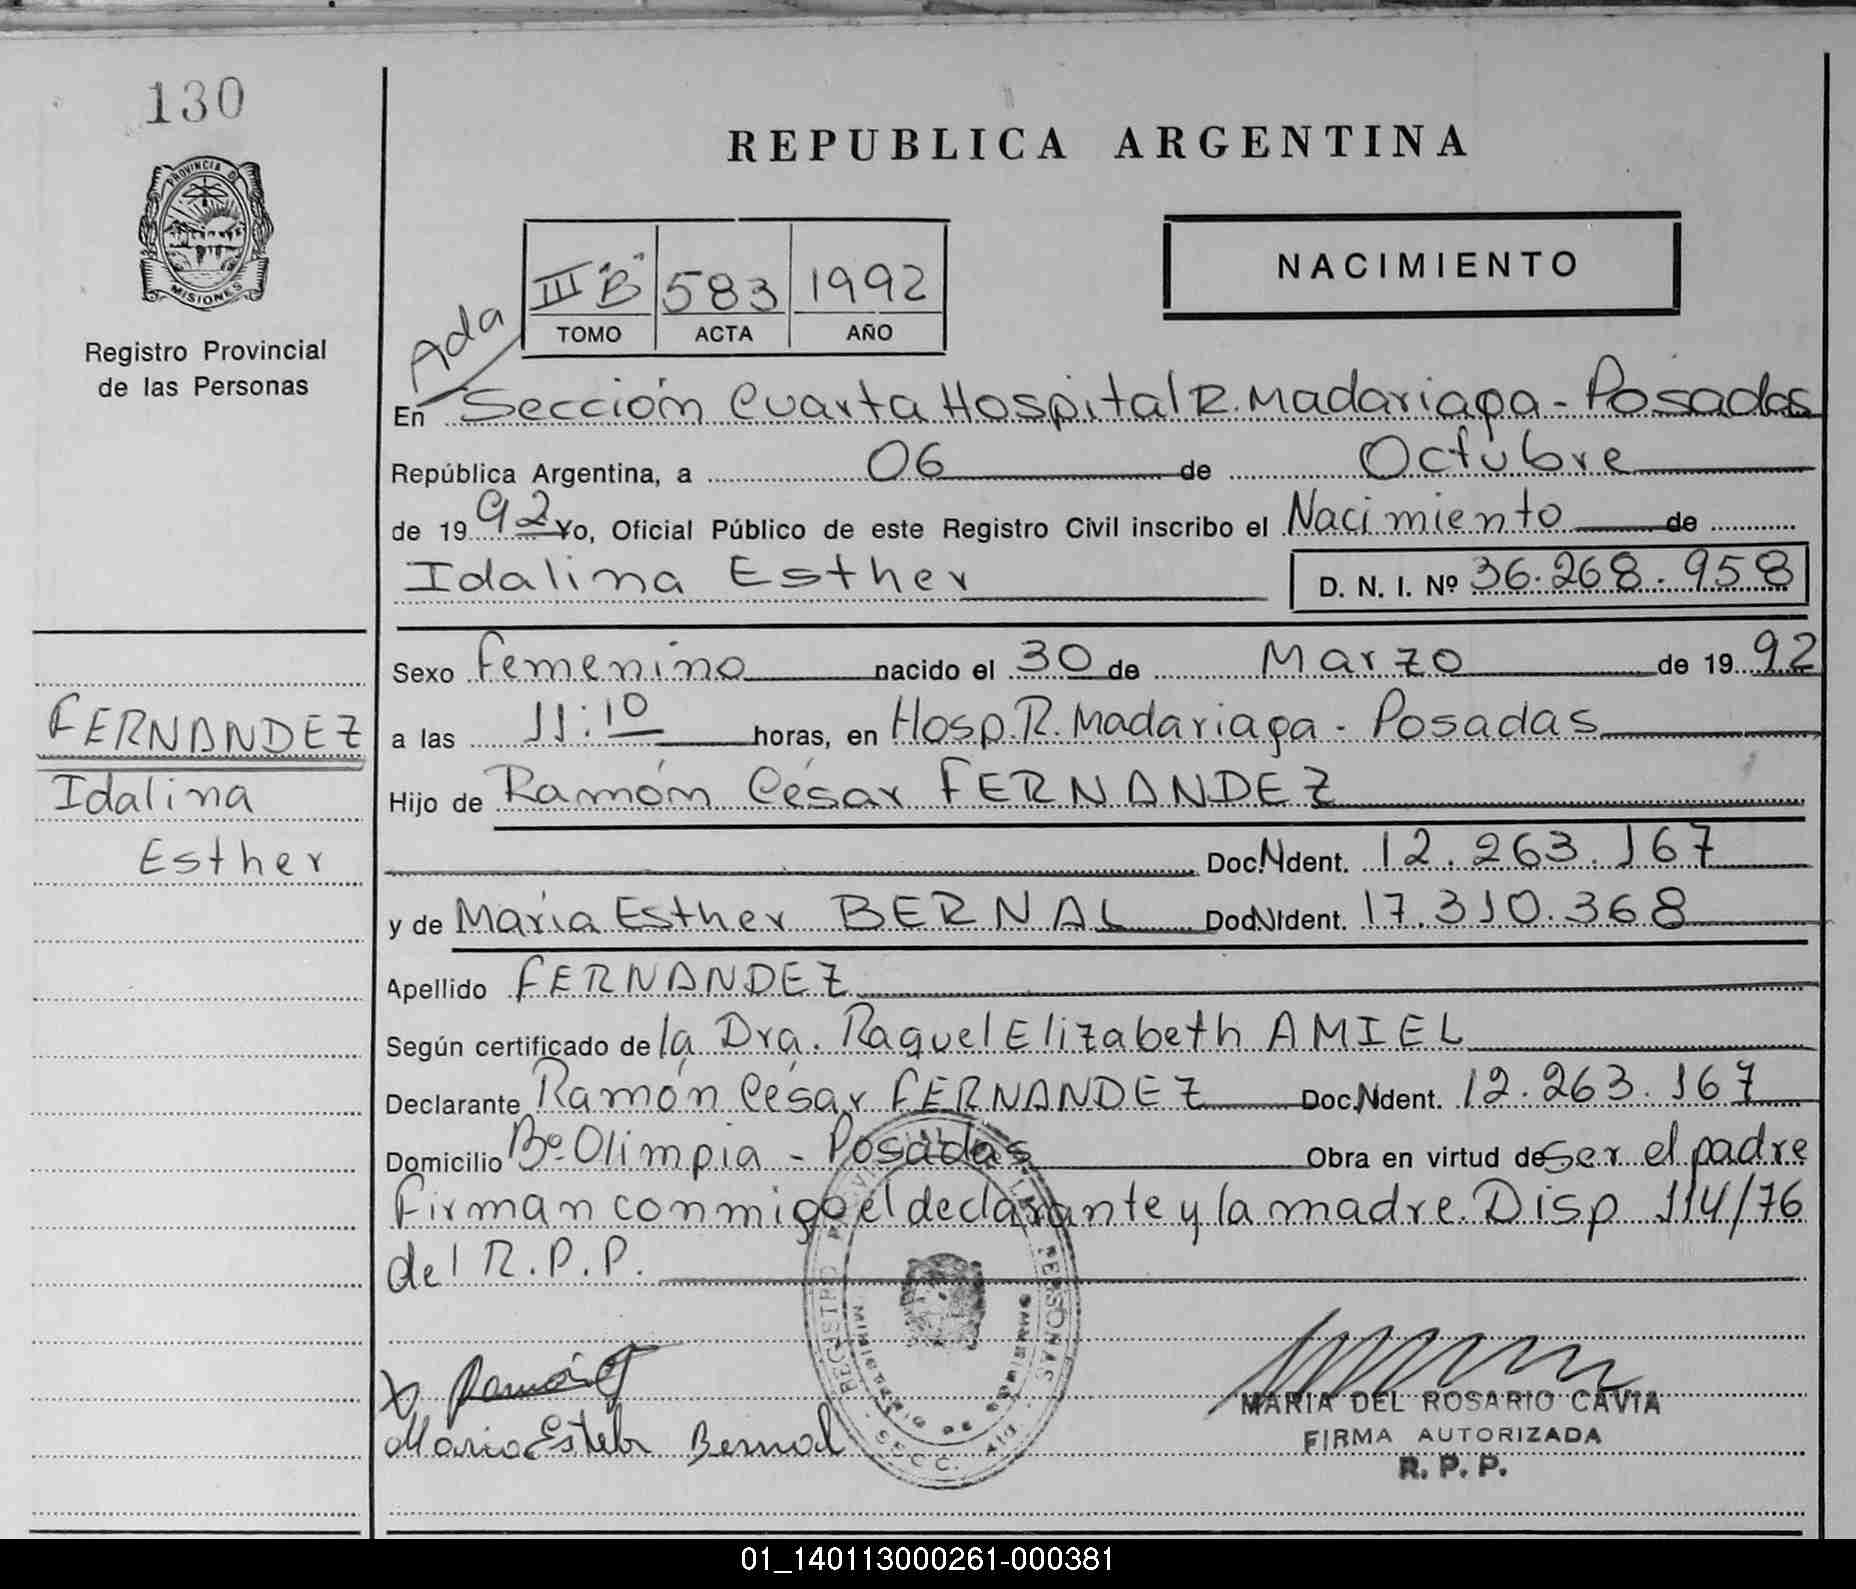 130
PROVINCIA D
MISIONES
Registro Provincial
de las Personas
REPUBLICA ARGENTINA
NACIMIENTO
III "B" 583 1992
TOMO ACTA AÑO
Ada
En Sección Cuarta Hospital R. Madariaga - Posadas
República Argentina, a 06 de Octubre
de 1992 Yo, Oficial Público de este Registro Civil inscribo el Nacimiento de
Idalina Esther D. N. I. Nº 36.268.958
Sexo Femenino nacido el 30 de Marzo de 1992
FERNANDEZ
Idalina
Esther
a las 11:10 horas, en Hosp. R. Madariaga - Posadas
Hijo de Ramón César FERNANDEZ
Doc. N Ident. 12.263.167
y de María Esther BERNAL Doc. N Ident. 17.310.368
Apellido FERNANDEZ
Según certificado de la Dra. Raquel Elizabeth AMIEL
Declarante Ramón César FERNANDEZ Doc. N Ident. 12.263.167
Domicilio Bº Olimpia - Posadas Obra en virtud de ser el padre
Firman conmigo el declarante y la madre. Disp 114/76
del R.P.P.
REGISTRO PERSONAS
SECC.
X Ramón
Maria Esteher Bernal
MARIA DEL ROSARIO CAVIA
FIRMA AUTORIZADA
R. P. P.
01_140113000261-000381